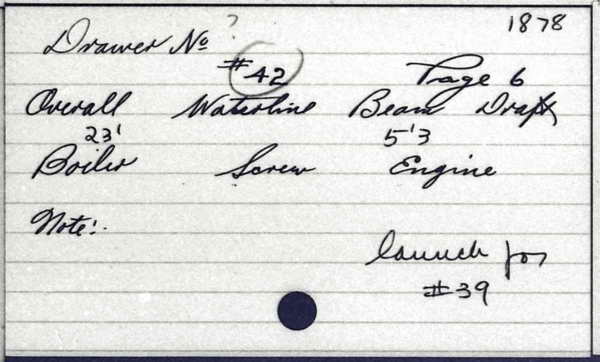 1878
Drawer No ?
#42 Page 6
Overall Waterline Beam Draft
23' 5'3
Boiler Screw Engine
Note:
launch for
#39